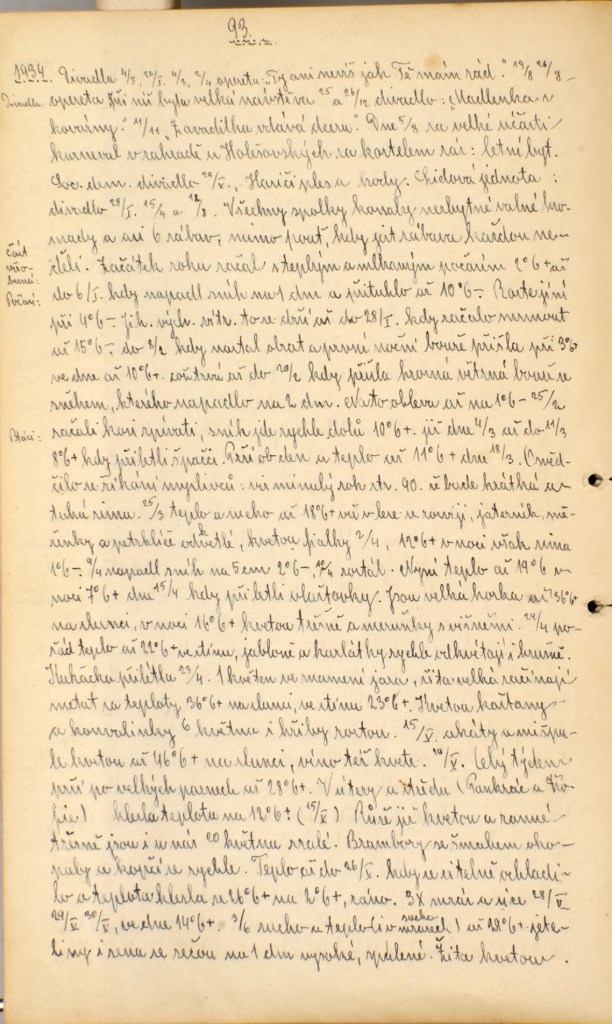 93.
1934. Divadla 4/3, 4/2, 2/4 opereta: „Ty ani nevíš jak Tě mám rád." 19/8 26/8
Divadla opereta při níž byla velká návštěva 25 a 26/12 divadlo: „Madlenka z
kovárny." 11/11 „Zavadilka vdává dceru." Dne 5/8 za velké účasti
karneval v zahradě u Holešovských za kartelem ráz: letní byt.
Soc. dem. divadlo, Hasiči ples a hody. Lidová jednota:
divadlo 28/I. 15/4 a 12/8. Všechny spolky konaly nezbytné valné hro-
mady a asi 6 zábav, mimo pouť, kdy jest zábava každou ne-
Část
vše-
obecná:
Počasí:
děli. Začátek roku začal s teplým a mlhavým počasím 2°6+ až
do 6/I. kdy napadl sníh na 1 dm a přituhlo až 10°6-. Roste jíní
při 4°6-. Jih. vých. vítr. to se drží až do 28/I. kdy začalo mrznout
až 15°6- do 8/2 kdy nastal obrat a první noční bouře přišla při 3°6
ve dne až 10°6+. což trvá až do 20/2 kdy přišla hrozná větrná bouře se
sněhem, kterého napadlo na 2 dm. Na to obleva až na 1°6- 25/2
Ptáci: začali kosi zpívati, sníh jde rychle dolů 10°6+. již dne 4/3 až do 11/3
8°6+ kdy přiletli špačci. Prší ob den a teplo až 11°6+ dne 18/3. Osvěd-
čilo se říkání myslivců: viz minulý rok str. 90. že bude krátká a
tuhá zima. 25/3 teplo a sucho až 18°6+ vše v lese se rozvíjí, jaterník, sně-
ženky a petrklíče odkvetlé, kvetou fialky 2/4, 12°6+ v noci však zima
1°6-. 9/4 napadl sníh na 5 cm 2°6-, roztál. Nyní teplo až 19°6 v
noci 7°6+ dne 15/4 kdy přiletli vlaštovky. Jsou velká horka až 36°6+
na slunci, v noci 16°6+ kvetou třešně a meruňky s višněmi. 24/4 po-
řád teplo až 22°6+ ve stínu, jabloně a karlátky rychle odkvétají i hrušně.
Kukačka přilétla 23/4. 1 květen ve znamení jara, žita velká začínají
metat za teploty 36°6+ na slunci, ve stínu 23°6+. Kvetou kaštany
a konvalinky 6 května i hřiby rostou. 15/V. akáty a mišpu-
le kvetou až 46°6+ na slunci, víno též kvete. Celý týden
prší po velkých parnech až 28°6+. V úterý a středu (Pankrác a Žo-
fie) klesla teplota na 12°6+. (15/V) Růže již kvetou a ranné
třešně jsou i u nás 20 května zralé. Brambory se šmahem oko-
paly a kopčí se rychle. Teplo až do 26/V. kdy se citelně ochladi-
lo a teplota klesla ze 26°6+ na 2°6+, ráno. 3X mráz a sice 28/V
29/V 30/V, ve dne 14°6+. 3/6 sucho a teplo (i v mracech sucho) až 28°6+ jete-
liny i sena se sečou na 1 dm vysoké, spálené. Žita kvetou.